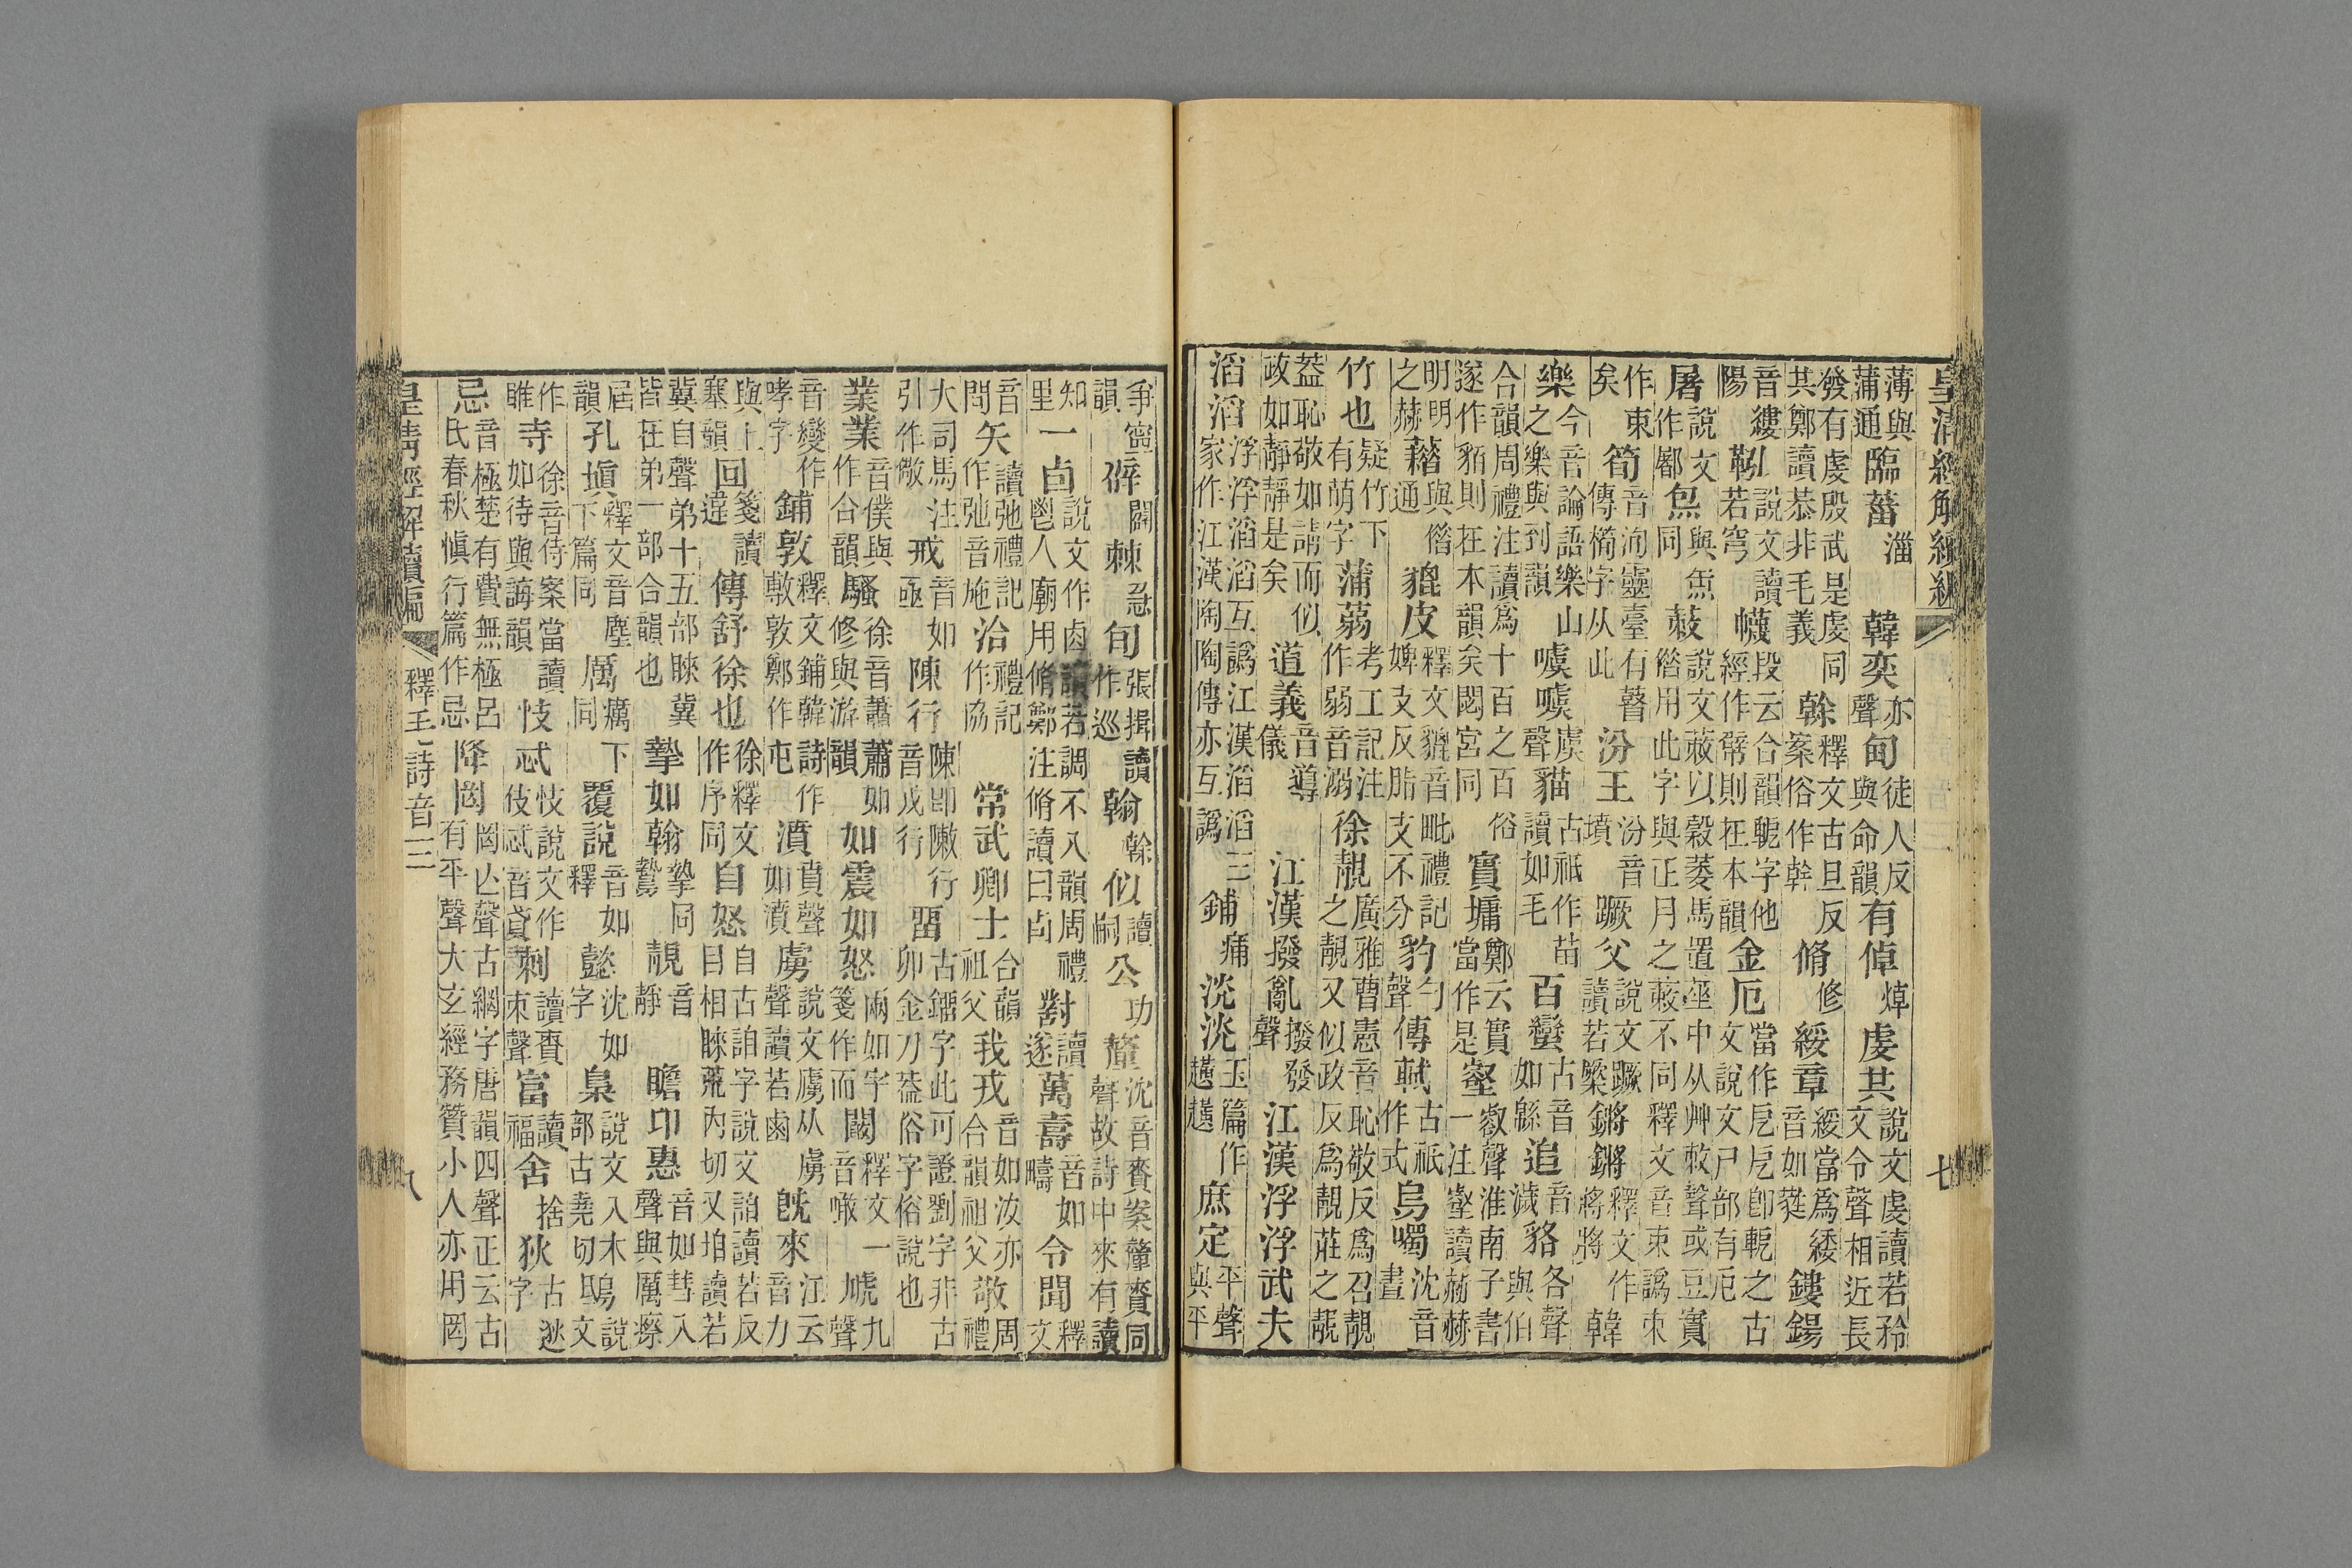 皇清經解續編　七
薄與蒲通臨菑淄韓奕亦聲甸徒人反與命韻有倬焯虔共說文虔讀若矜文令聲相近長
發有虔殷武是虔同其鄭讀恭非毛義榦釋文古旦反案俗作幹脩修綏章綏當爲緌音如蕤鏤鍚
音縷陽鞃說文讀若穹幭段云合韻軶字他經作幦則在本韻金厄當作戹戹卽軶之古文說文尸部有戹
屠說文作鄘炰與炰同蔌說文蔌以穀萎馬置莝中从艸敕聲或豆實俗用此字與正月之蔌不同釋文音束譌朿
作東矣筍音洵靈臺有簪傳椅字从此汾王汾音墳蹶父說文蹶讀若橜鏘鏘釋文作將將韓
樂今音論語樂山之樂與到韻噳噳虞聲貓古祇作苗讀如毛百蠻古音如緜追音濊貉各聲與伯
合韻周禮注讀爲十百之百遂作貊則在本韻矣閟宮同實墉鄭云俗當作是實壑叡聲淮南子書一注壑讀赫赫
明明之赫藉與㗖通貔皮釋文貔音毗禮記婢支反脂支不分豹勺聲傳軾古祇作式烏噣沈音晝
竹也疑竹下有萌字蒲蒻考工記注作弱音溺徐靚廣雅曹憲音恥敬反爲召靚之靚又似政反爲靚莊之靚
蓋恥敬如請而似政如靜靜是矣道義音導儀江漢撥亂撥發聲江漢浮浮武夫
滔滔浮浮滔滔互譌江漢滔滔三家作江漢陶陶傳亦互譌鋪痡淡淡玉篇作庶定平聲與平
爭寧韻辟闢棘急旬張揖作巡讀翰榦似讀嗣公功釐沈音賚案釐賚同聲故詩中來有讀
知里一卣說文作卤讀若調不入韻周禮鬯人廟用脩鄭注脩讀曰卣對讀遂萬壽音如疇令聞釋文
音問矢讀弛禮記作弛音施洽禮記作協常武卿士合韻祖父我戎音如汝亦合韻祖父敬周禮
大司馬注引作儆戒音如亟陳行陳卽敶行音戎行畱古鎦字此可證劉字非古卯金刀葢俗字俗說也
業業音僕與作合韻騷徐音蕭修與游韻蕭如如震如怒兩如字箋作而闞釋文一音噉虓九聲
音變作哮字鋪敦釋文鋪韓詩作敷敦鄭作屯濆賁聲如濆虜說文虜从虍聲讀若鹵旣來江云音力
與上塞韻回箋讀違傳舒徐也徐釋文作序同自怒自古詯字說文詯讀若反目相睞苑內切又珀讀若
冀自聲弟十五部睞冀皆在弟一部合韻也摯如翰摯同鷙靚音靜瞻卬惠音如彗入聲與厲瘵
屆韻孔塡釋文音塵下篇同厲癘下同覆說音如釋懿沈如字梟說文入木部古堯切鴞說文
作睢寺徐音侍案當讀如待與誨韻忮忒忮說文作伎忒音貸刺讀賚朿聲富讀福舍捨狄古逖字
忌音極楚有費無極呂氏春秋愼行篇作忌降罔罔亾聲古網字唐韻四聲正云古有平聲大玄經務贊小人亦用罔
皇淸經解續編　釋毛詩音三　八